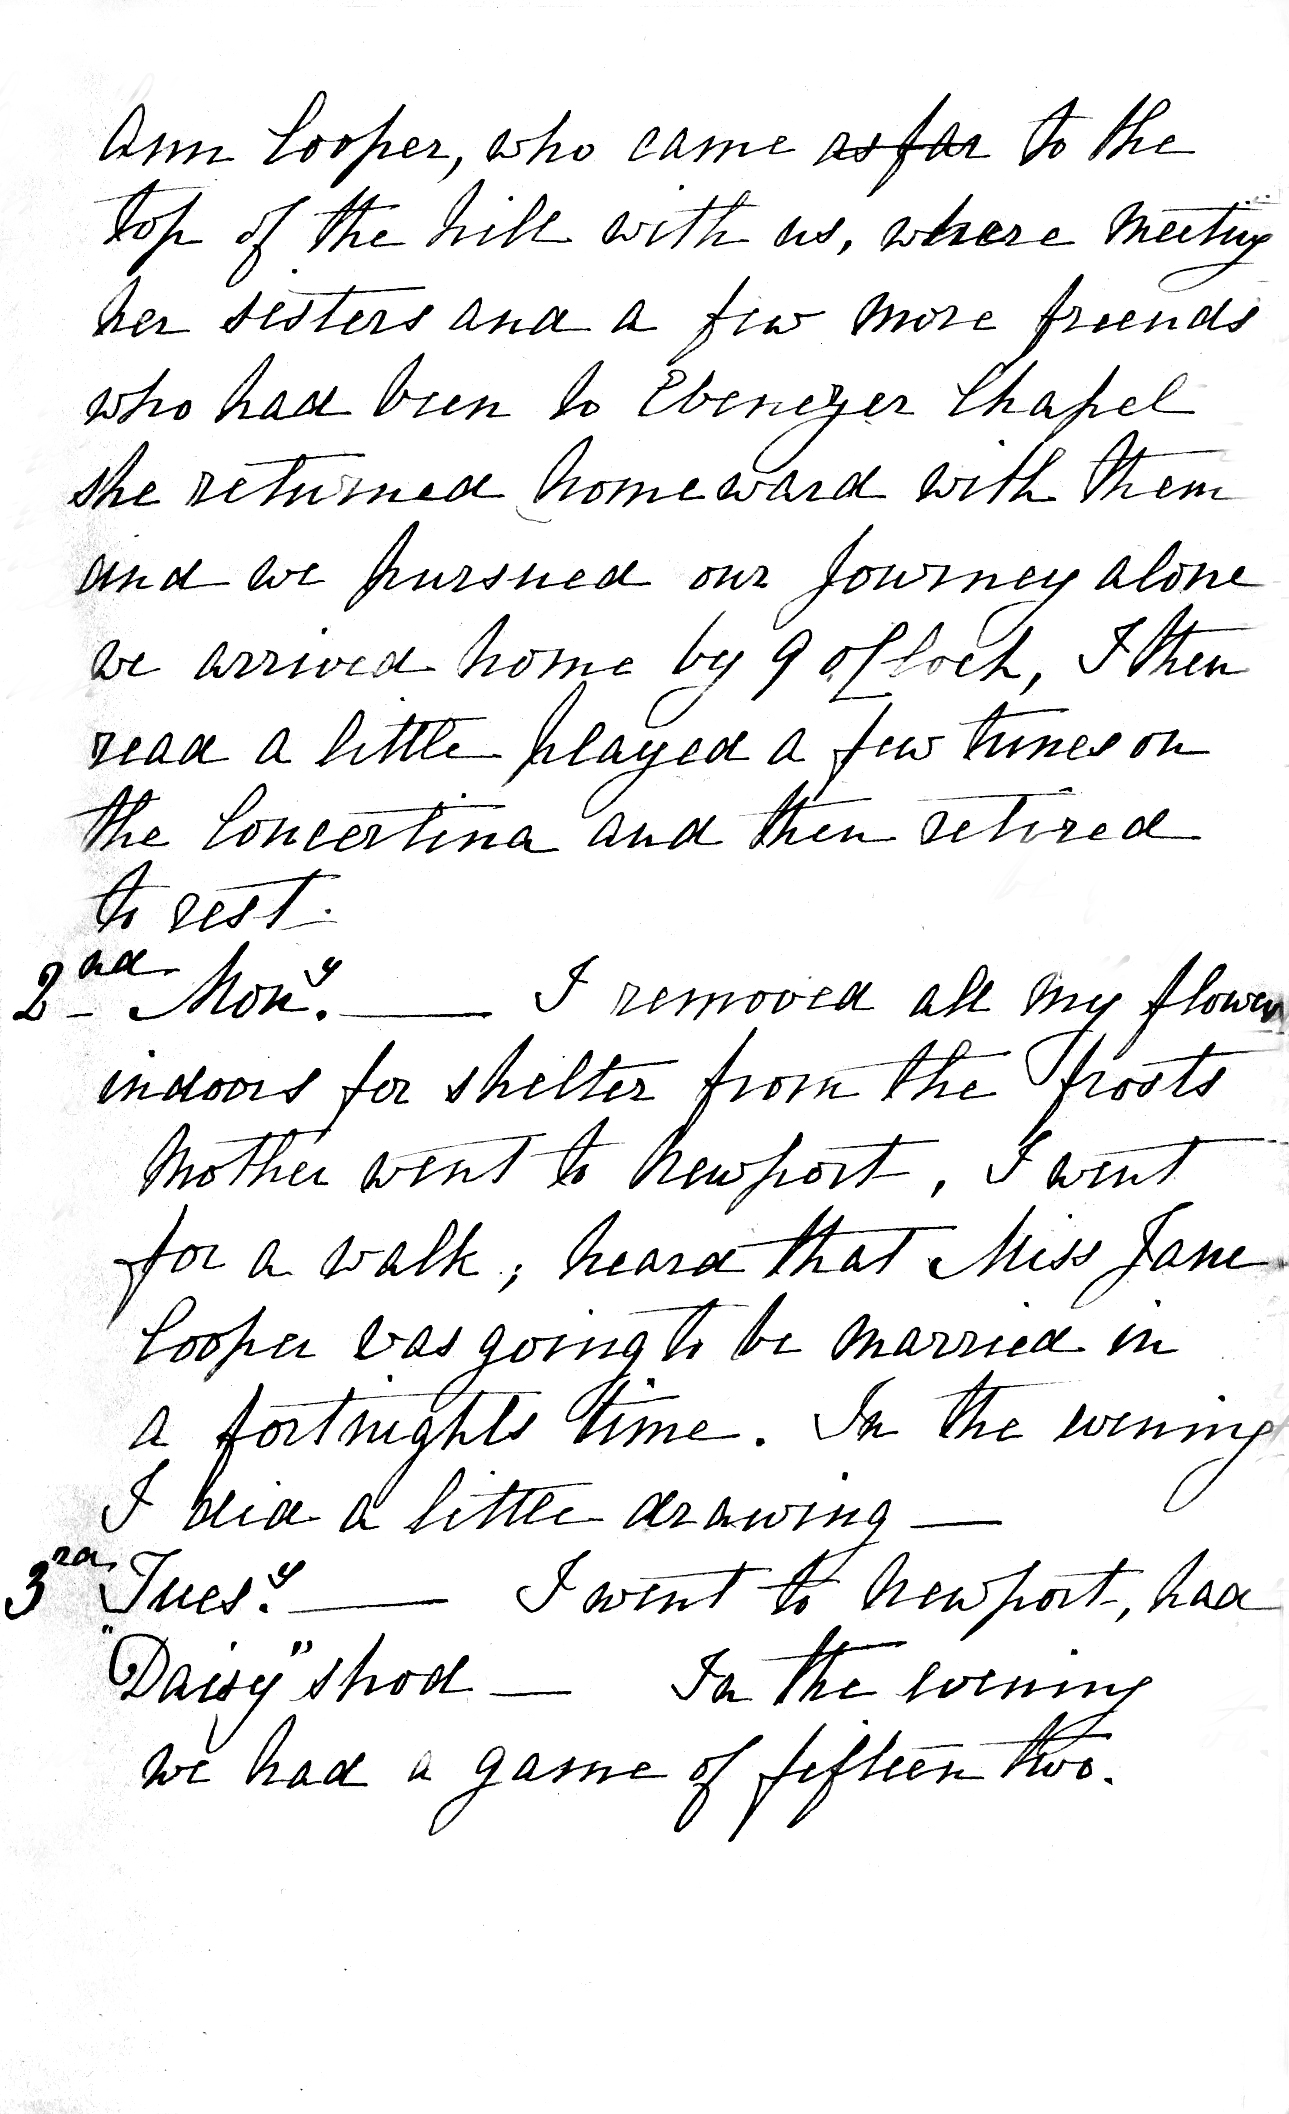 Ann Cooper, who came ~~as far~~ to the
top of the hill with us, where meeting
her sisters and a few more friends
who had been to Ebenezer Chapel
she returned homeward with them
and we pursued our journey alone
we arrived home by 9 o'Clock, I then
read a little played a few tunes on
the Concertina and then retired
to rest.
2nd Mony. — I removed all my flowers
indoors for shelter from the frosts
Mother went to Newport, I went
for a walk; heard that Miss Jane
Cooper was going to be married in
a fortnights time. In the evening
I did a little drawing —
3rd Tuesy. — I went to Newport, had
"Daisy" shod — In the evening
we had a game of fifteen two.